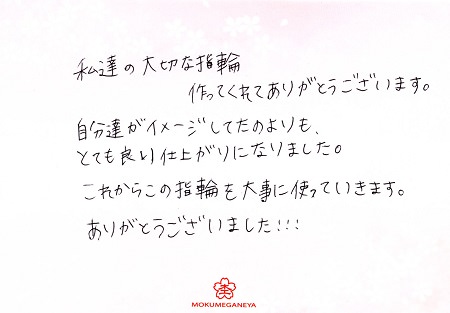 私達の大切な指輪
作ってくれてありがとうございます。
自分達がイメージしてたのよりも、
とても良い仕上がりになりました。
これからこの指輪を大事に使っていきます。
ありがとうございました!!!
MOKUMEGANEYA